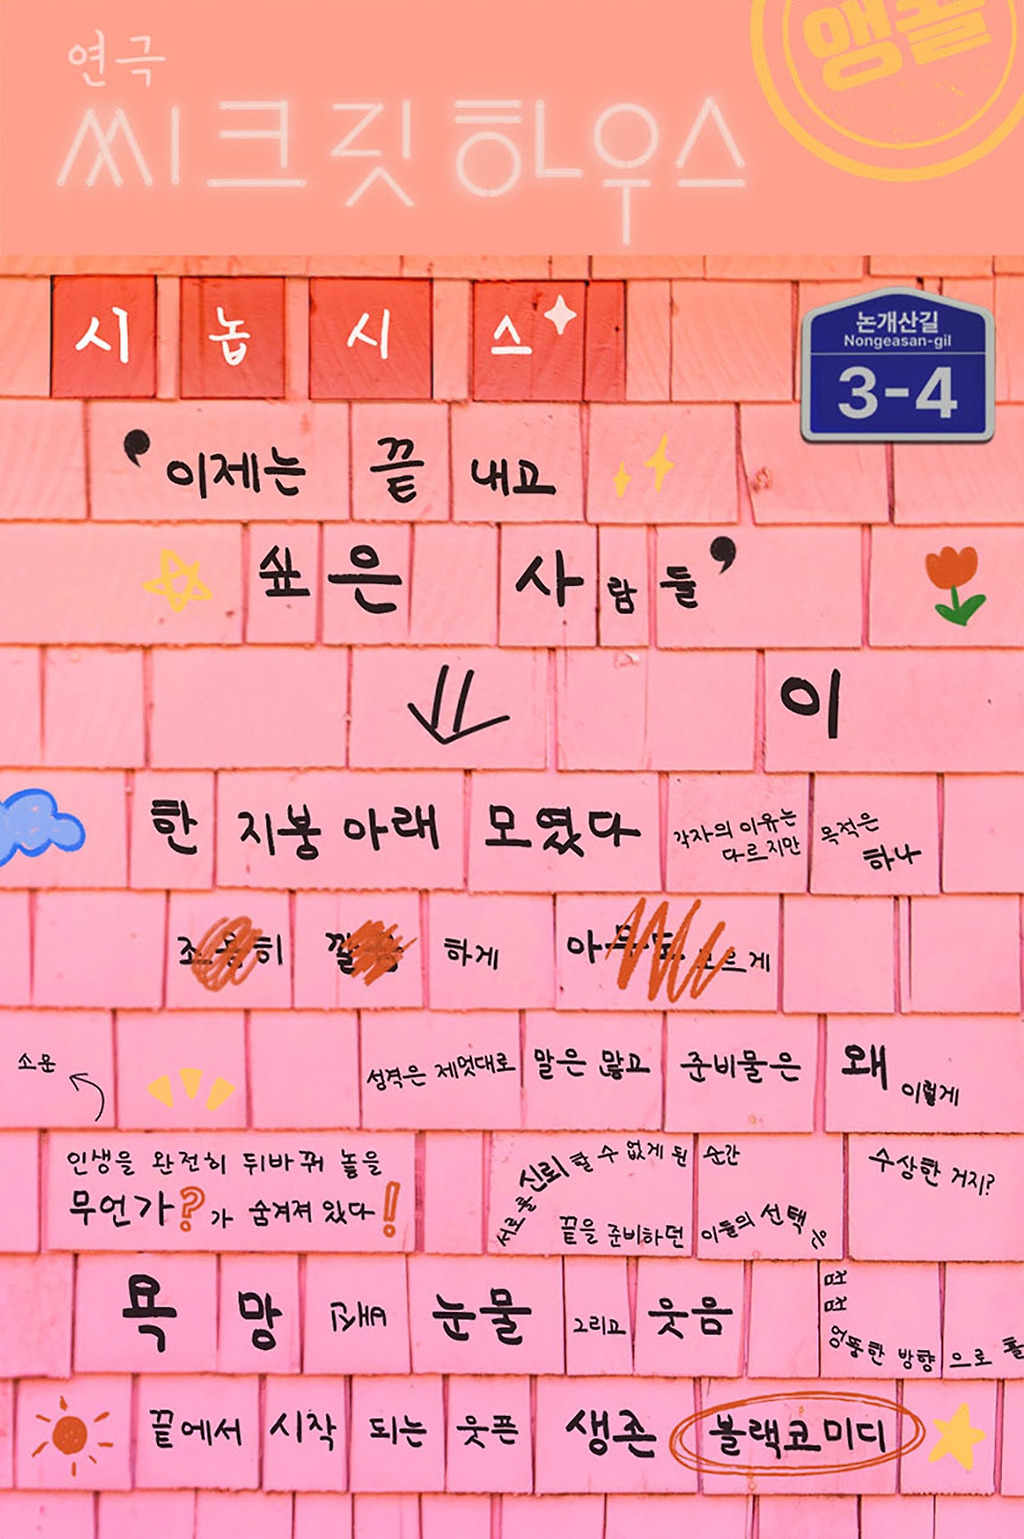 앵콜
연극
씨크릿하우스
시놉시스
논개산길
Nongeasan-gil
3-4
❜이제는 끝 내고
싶은 사람들❜
이
한 지붕 아래 모였다
각자의 이유는
다르지만
목적은
하나
조용히 깔끔하게 아무도 모르게
소문
성격은 제멋대로 말은 많고 준비물은 왜 이렇게
수상한 거지?
인생을 완전히 뒤바꿔 놓을
무언가?가 숨겨져 있다!
서로를 신뢰할 수 없게 된 순간
끝을 준비하던 이들의 선택은
점점
엉뚱한 방향으로
욕망 고백 눈물 그리고 웃음
끝에서 시작되는 웃픈 생존 블랙코미디